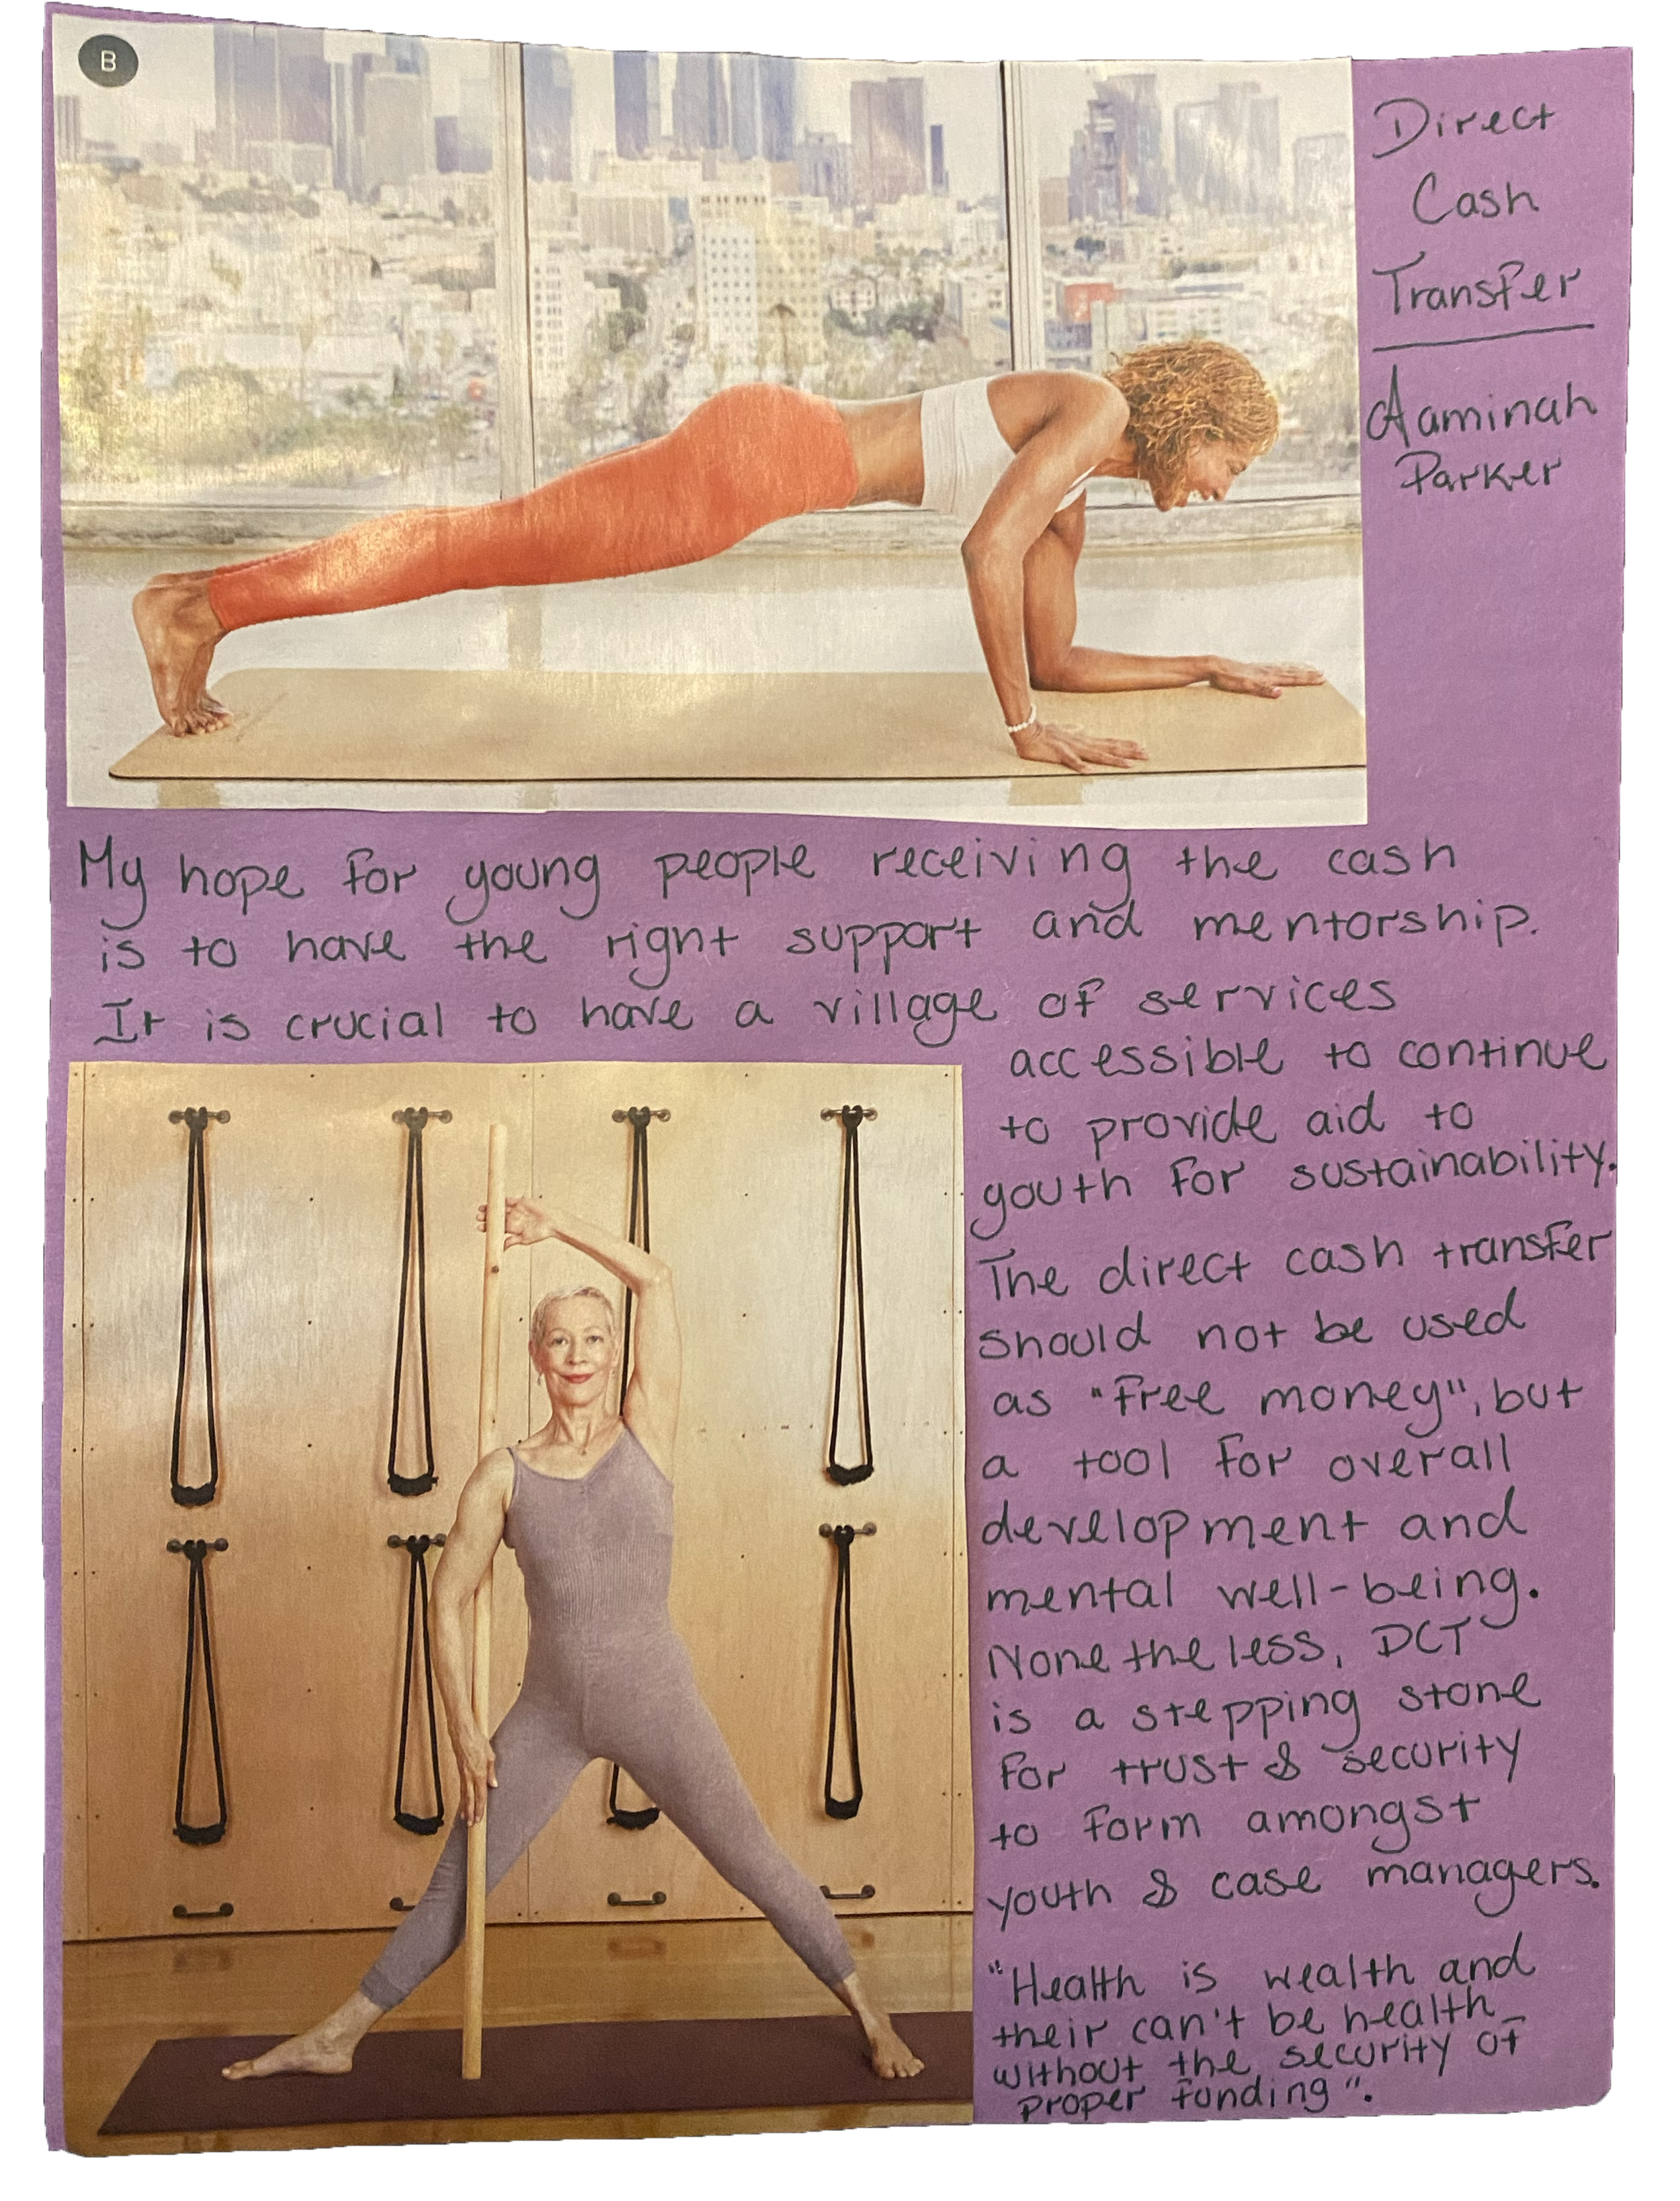 B
Direct
Cash
Transfer
Aaminah
Parker
My hope for young people receiving the cash
is to have the right support and mentorship.
It is crucial to have a village of services
accessible to continue
to provide aid to
youth for sustainability.
The direct cash transfer
should not be used
as "free money", but
a tool for overall
development and
mental well-being.
None the less, DCT
is a stepping stone
for trust & security
to form amongst
youth & case managers.
"Health is wealth and
their can't be health
without the security of
proper funding".